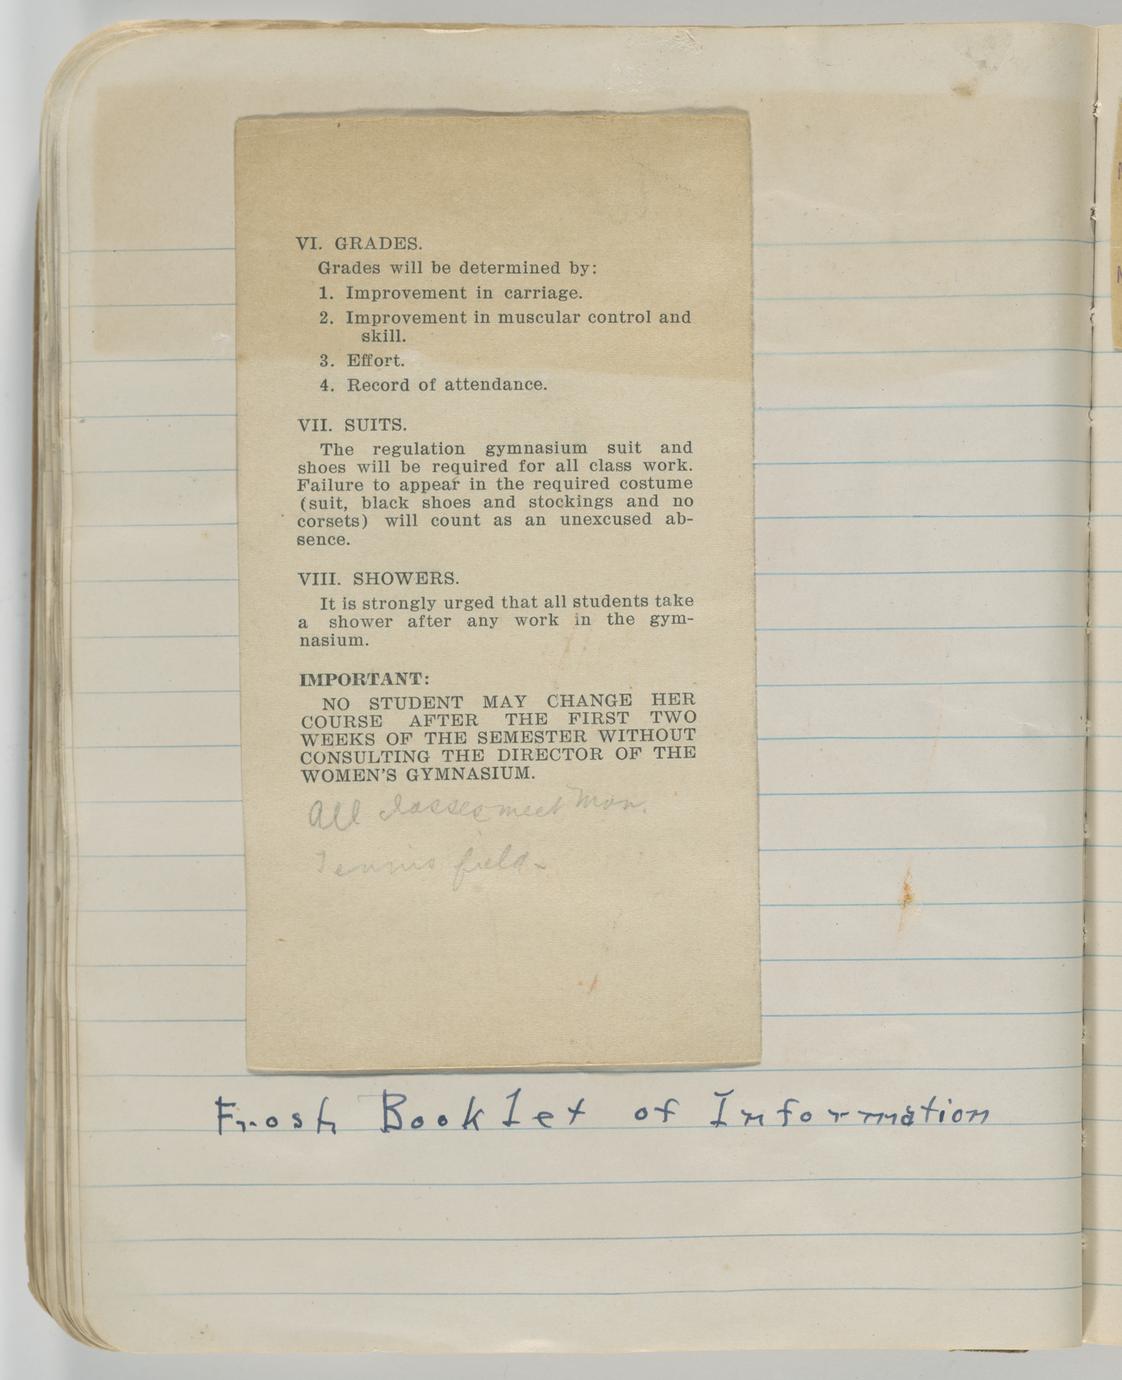 VI. GRADES.
Grades will be determined by:
1. Improvement in carriage.
2. Improvement in muscular control and
skill.
3. Effort.
4. Record of attendance.
VII. SUITS.
The regulation gymnasium suit and
shoes will be required for all class work.
Failure to appear in the required costume
(suit, black shoes and stockings and no
corsets) will count as an unexcused ab-
sence.
VIII. SHOWERS.
It is strongly urged that all students take
a shower after any work in the gym-
nasium.
IMPORTANT:
NO STUDENT MAY CHANGE HER
COURSE AFTER THE FIRST TWO
WEEKS OF THE SEMESTER WITHOUT
CONSULTING THE DIRECTOR OF THE
WOMEN'S GYMNASIUM.
All classes meet Mon.
Tennis field-
Frosh Booklet of Information